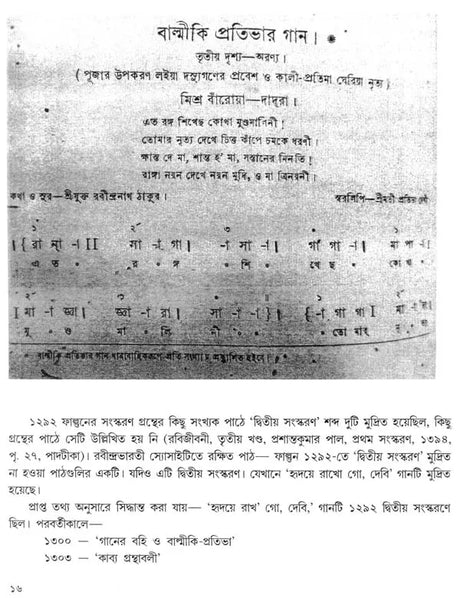 বাল্মীকি প্রতিভার গান।
তৃতীয় দৃশ্য—অরণ্য।
( পূজার উপকরণ লইয়া দস্যুগণের প্রবেশ ও কালী-প্রতিমা ঘেরিয়া নৃত্য )
মিশ্র বাঁরোয়া—দাদ্‌রা।
এত রঙ্গ শিখেছ কোথা মুণ্ডমালিনী!
তোমার নৃত্য দেখে চিত্ত কাঁপে চমকে ধরণী।
ক্ষান্ত দে মা, শান্ত হ' মা, সন্তানের মিনতি।
রাঙ্গা নয়ন দেখে নয়ন মুদি, ও মা ত্রিনয়নী।
কথা ও সুর—শ্রীযুক্ত রবীন্দ্রনাথ ঠাকুর। স্বরলিপি—শ্রীমতী প্রতিভা দেবী
১ ২ ৩ ১
I { রা না -া I I সা -া গা I -া সা -া I গা গা -া I মা পা
এ ত ॰ র ॰ ঙ্গ ॰ শি ॰ খে ছ ॰ কো থা
২ ৩ ১
I মা -া জ্ঞা I জ্ঞা -া রা I সা -া -া } I -া গা গা I মা
মু ॰ ণ্ড মা ॰ লি নী ॰ ॰ ॰ তো মার্
বাল্মীকি প্রতিভার গান ধারাবাহিকরূপে প্রতি সংখ্যায় প্রকাশিত হইবে।
১২৯২ ফাল্গুনের সংস্করণ গ্রন্থের কিছু সংখ্যক পাঠে 'দ্বিতীয় সংস্করণ' শব্দ দুটি মুদ্রিত হয়েছিল, কিছু
গ্রন্থের পাঠে সেটি উল্লিখিত হয় নি (রবিজীবনী, তৃতীয় খণ্ড, প্রশান্তকুমার পাল, প্রথম সংস্করণ, ১৩৯৪,
পৃ. ২৭, পাদটীকা)। রবীন্দ্রভারতী সোসাইটিতে রক্ষিত পাঠ— ফাল্গুন ১২৯২-তে 'দ্বিতীয় সংস্করণ' মুদ্রিত
না হওয়া পাঠগুলির একটি। যদিও এটি দ্বিতীয় সংস্করণ। যেখানে 'হৃদয়ে রাখো গো, দেবি' গানটি মুদ্রিত
হয়েছে।
প্রাপ্ত তথ্য অনুসারে সিদ্ধান্ত করা যায়— 'হৃদয়ে রাখ' গো, দেবি,' গানটি ১২৯২ দ্বিতীয় সংস্করণে
ছিল। পরবর্তীকালে—
১৩০০ – 'গানের বহি ও বাল্মীকি-প্রতিভা'
১৩০৩ – 'কাব্য গ্রন্থাবলী'
১৬